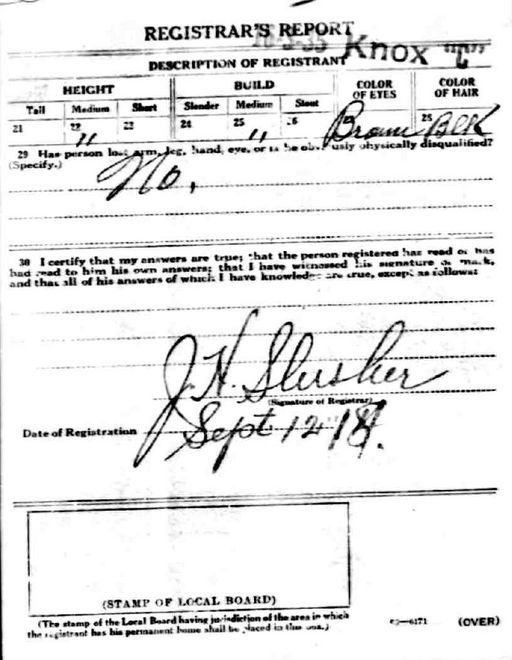 REGISTRAR'S REPORT
16-3-35 Knox "C"
DESCRIPTION OF REGISTRANT
HEIGHT BUILD COLOR OF EYES COLOR OF HAIR
Tall Medium Short Slender Medium Stout
21 22 " 23 24 25 " 26 Brown 28 Blk
29 Has person lost arm, leg, hand, eye, or is he obviously physically disqualified?
(Specify.)
No.
30 I certify that my answers are true; that the person registered has read or has
had read to him his own answers; that I have witnessed his signature or mark,
and that all of his answers of which I have knowledge are true, except as follows:
J. H. Slusher
(Signature of Registrar)
Date of Registration Sept 12 18.
(STAMP OF LOCAL BOARD)
(The stamp of the Local Board having jurisdiction of the area in which
the registrant has his permanent home shall be placed in this box.)
03—6171 (OVER)